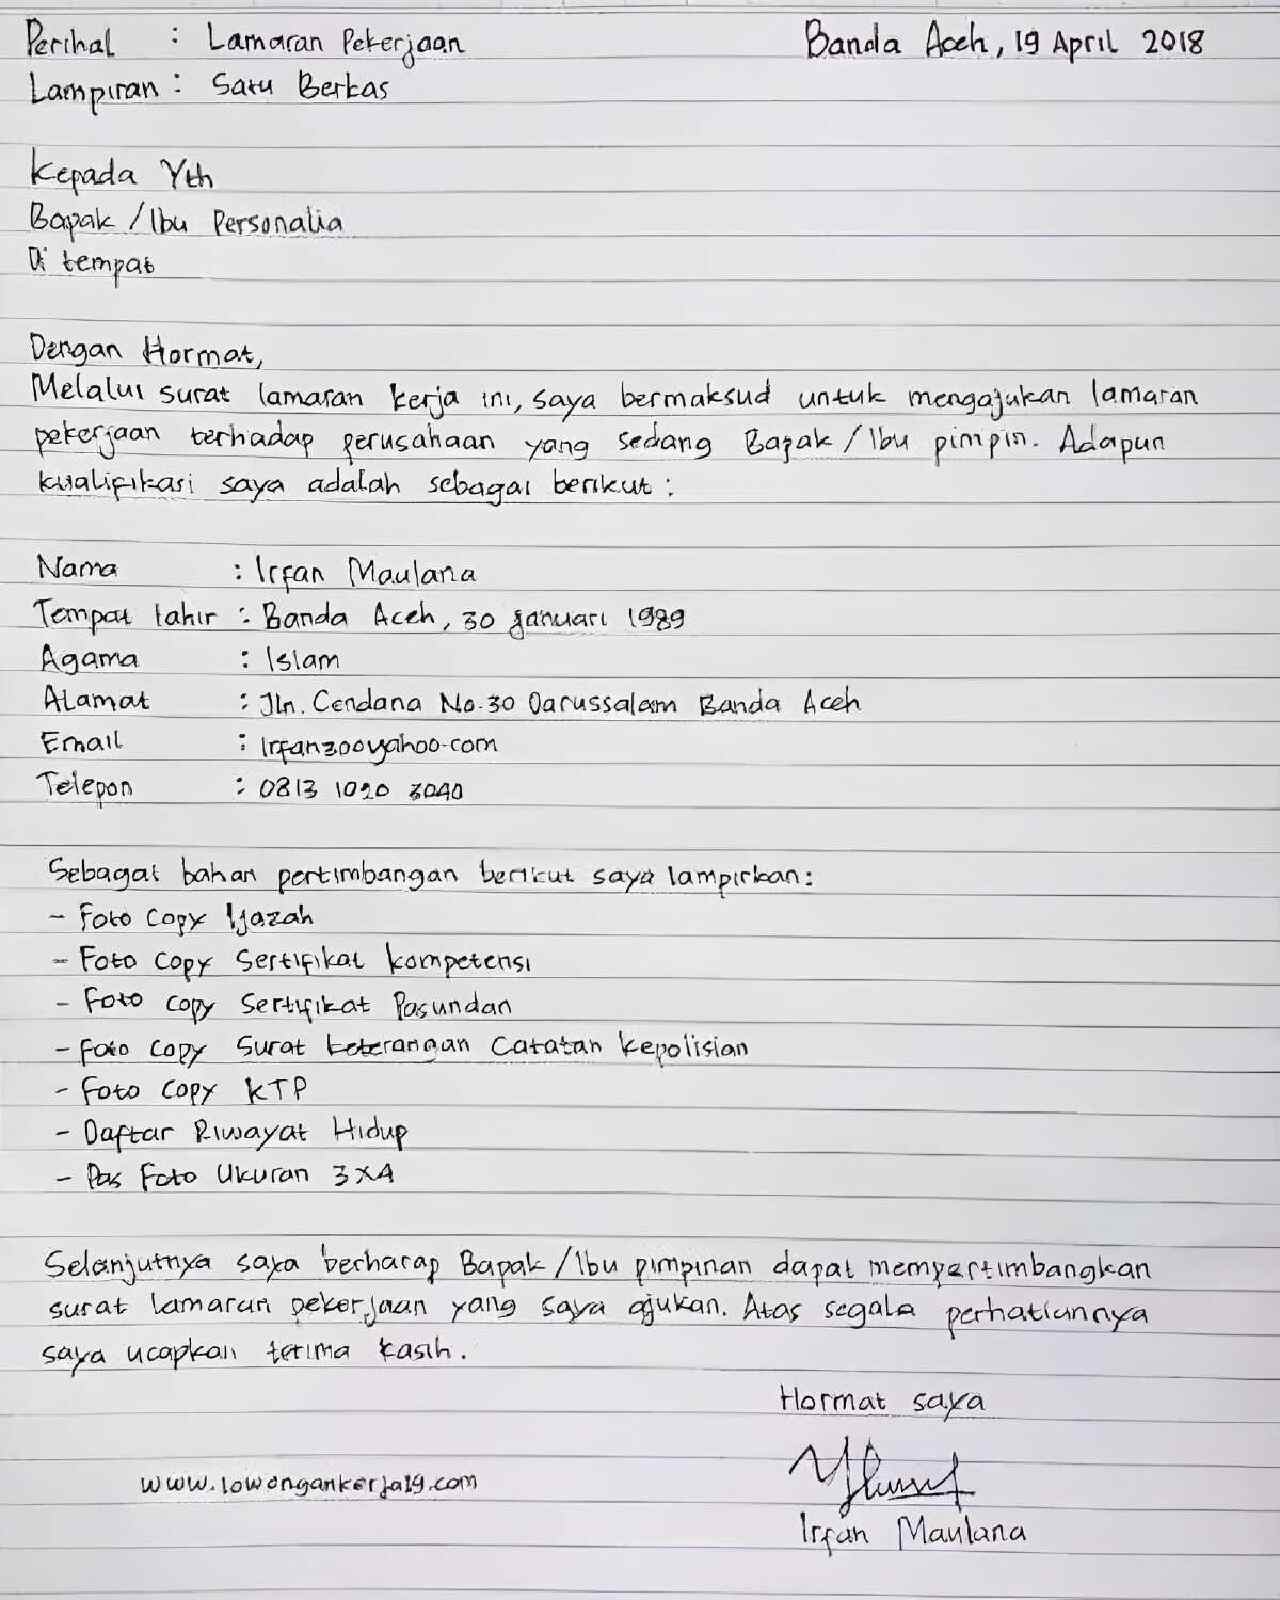 Perihal : Lamaran Pekerjaan Banda Aceh, 19 April 2018
Lampiran : Satu Berkas
Kepada Yth
Bapak / Ibu Personalia
Di tempat
Dengan Hormat,
Melalui surat lamaran kerja ini, saya bermaksud untuk mengajukan lamaran
pekerjaan terhadap perusahaan yang sedang Bapak / Ibu pimpin. Adapun
kualifikasi saya adalah sebagai berikut :
Nama : Irfan Maulana
Tempat lahir : Banda Aceh, 30 januari 1989
Agama : Islam
Alamat : Jln. Cendana No.30 Darussalam Banda Aceh
Email : irfan300yahoo.com
Telepon : 0813 1020 3040
Sebagai bahan pertimbangan berikut saya lampirkan:
- Foto Copy Ijazah
- Foto Copy Sertifikat kompetensi
- Foto Copy Sertifikat Pasundan
- Foto Copy Surat keterangan Catatan kepolisian
- Foto Copy KTP
- Daftar Riwayat Hidup
- Pas Foto Ukuran 3x4
Selanjutnya saya berharap Bapak / Ibu pimpinan dapat mempertimbangkan
surat lamaran pekerjaan yang saya ajukan. Atas segala perhatiannya
saya ucapkan terima kasih.
Hormat saya
www.lowongankerja19.com
Irfan Maulana